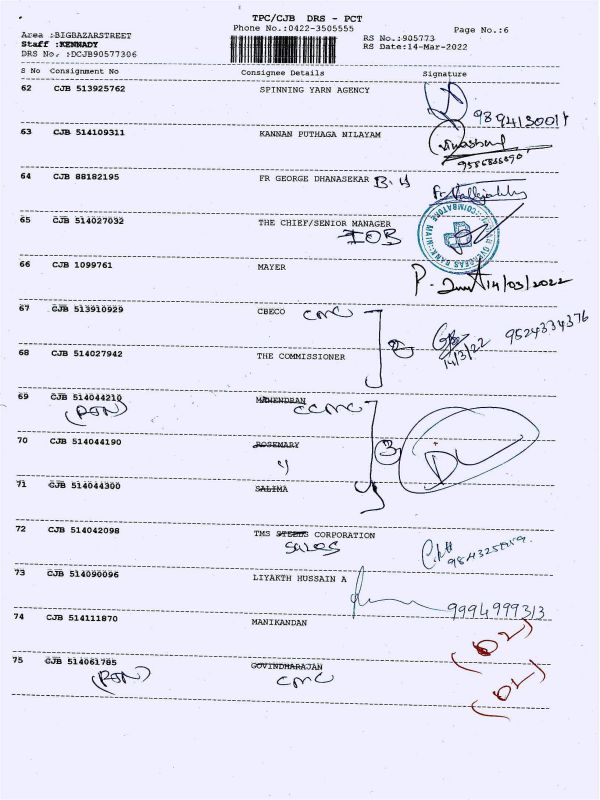 TPC/CJB DRS - PCT
Phone No.:0422-3505555 Page No.:6
Area :BIGBAZARSTREET RS No.:905773
Staff :KENNADY RS Date:14-Mar-2022
DRS No. :DCJB90577306
S No Consignment No Consignee Details Signature
62 CJB 513925762 SPINNING YARN AGENCY
63 CJB 514109311 KANNAN PUTHAGA NILAYAM
64 CJB 88182195 FR GEORGE DHANASEKAR B.H
65 CJB 514027032 THE CHIEF/SENIOR MANAGER
IOB
66 CJB 1099761 MAYER
14/03/2022
67 CJB 513910929 CBECO CMC
9524334376
2 14/3/22
68 CJB 514027942 THE COMMISSIONER
69 CJB 514044210 MAHENDRAN CCMC
(RTN)
70 CJB 514044190 ROSEMARY 3
71 CJB 514044300 SALIMA
72 CJB 514042098 TMS STEELS CORPORATION
SALES
73 CJB 514090096 LIYAKTH HUSSAIN A
9994999313
74 CJB 514111870 MANIKANDAN
(DL)
75 CJB 514061785 GOVINDHARAJAN
(RTN) CMC (DL)